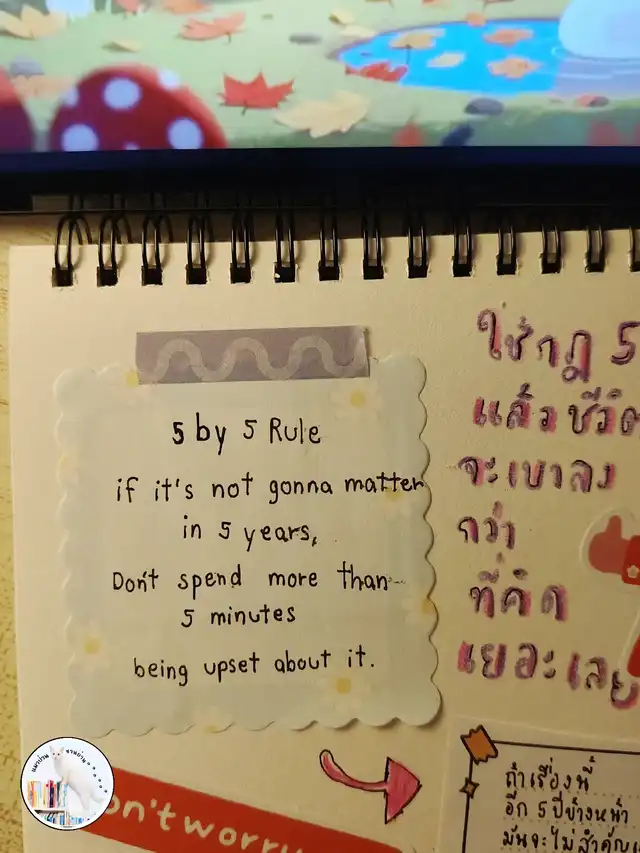 5 by 5 Rule
if it's not gonna matter
in 5 years,
Don't spend more than
5 minutes
being upset about it.
ใช้กฎ 5
แล้วชีวิต
จะเบาลง
กว่า
ที่คิด
เยอะเลย
ถ้าเรื่องนี้
อีก 5 ปีข้างหน้า
มันจะไม่สำคัญ
on't worry